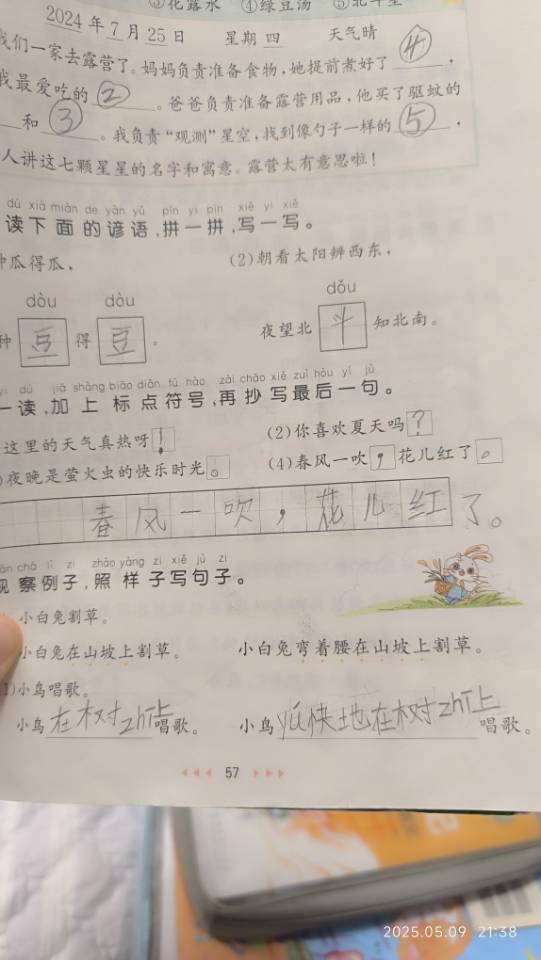 ③花露水 ④绿豆汤 ⑤北斗星
2024年7月25日 星期四 天气晴
我们一家去露营了。妈妈负责准备食物,她提前煮好了④,
我最爱吃的②。爸爸负责准备露营用品,他买了驱蚊的
和③。我负责“观测”星空,找到像勺子一样的⑤,
人讲这七颗星星的名字和寓意。露营太有意思啦!
dú xià miàn de yàn yǔ pīn yi pīn xiě yi xiě
读下面的谚语,拼一拼,写一写。
种瓜得瓜, (2)朝看太阳辨西东,
dòu dòu dǒu
种豆得豆。 夜望北斗知北南。
yi dú jiā shàng biāo diǎn fú hào zài chāo xiě zuì hòu yí jù
一读,加上标点符号,再抄写最后一句。
这里的天气真热呀! (2)你喜欢夏天吗?
夜晚是萤火虫的快乐时光。 (4)春风一吹,花儿红了。
春风一吹,花儿红了。
guān chá lì zi zhào yàng zi xiě jù zi
观察例子,照样子写句子。
小白兔割草。
小白兔在山坡上割草。 小白兔弯着腰在山坡上割草。
(1)小鸟唱歌。
小鸟在树zhī上唱歌。 小鸟yú快地在树zhī上唱歌。
57
2025.05.09 21:38